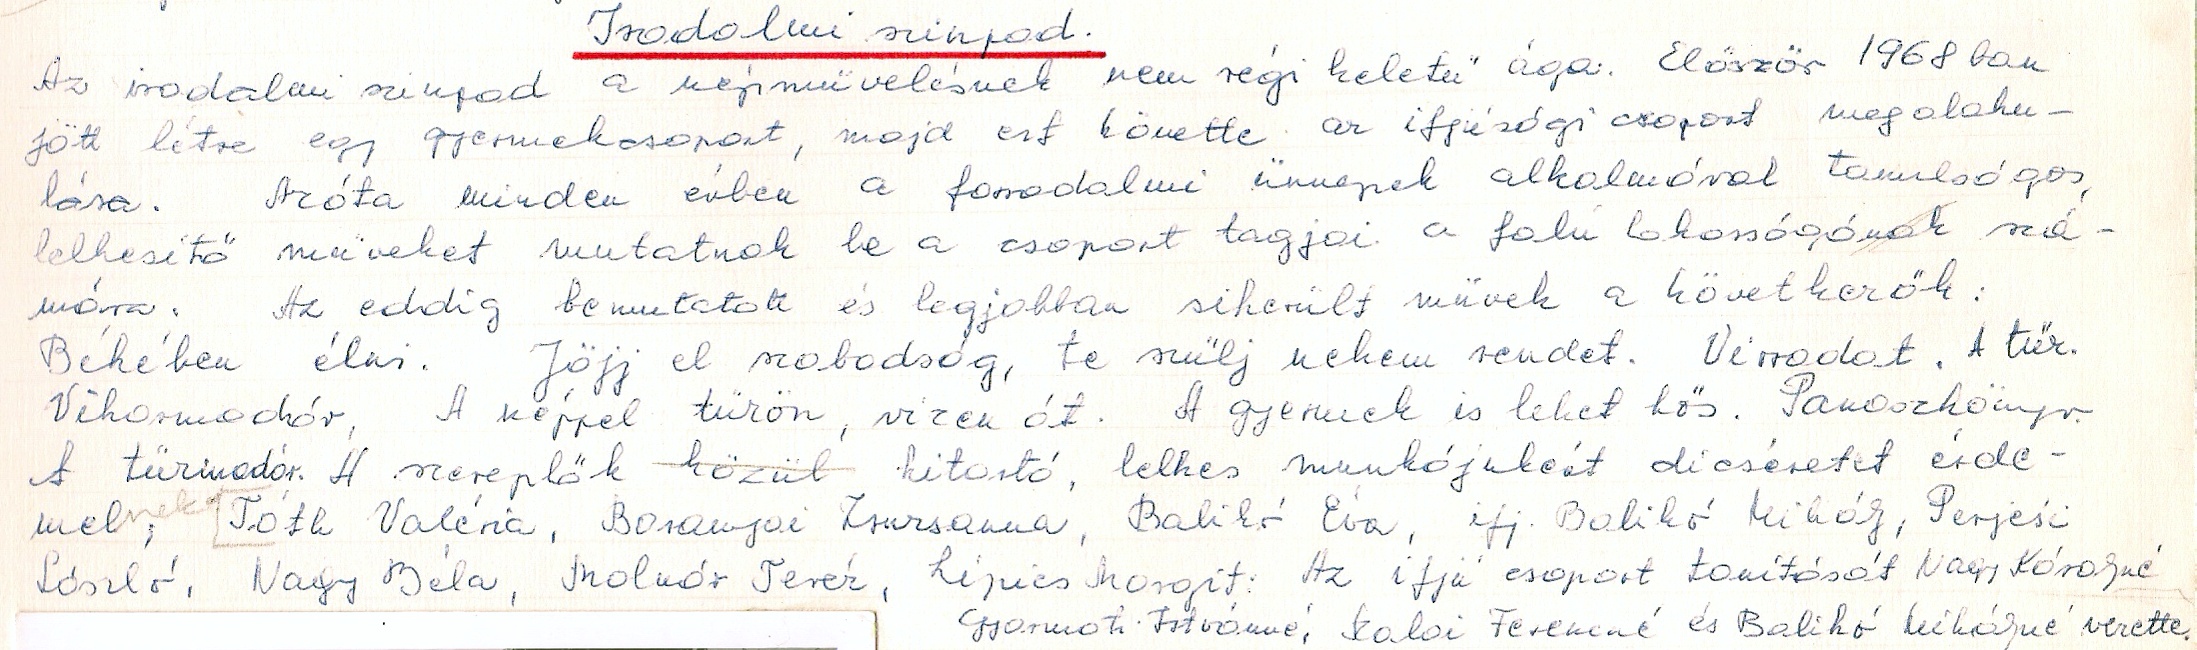 Irodalmi szinpad.
Az irodalmi szinpad a népművelésnek nem régi keletű ága. Először 1968 ban
jött létre egy gyermekcsoport, majd ezt követte az ifjúsági csoport megalaku-
lása. Azóta minden évben a forradalmi ünnepek alkalmával tanulságos,
lelkesítő műveket mutatnak be a csoport tagjai a falu lakosságának szá-
mára. Az eddig bemutatott és legjobban sikerült művek a következők:
Békében élni. Jöjj el szabadság, te szülj nekem rendet. Virradat. A tűz.
Viharmadár, A néppel tűzön, vizen át. A gyermek is lehet hős. Panaszkönyv.
A tűzmadár. A szereplők közül kitartó, lelkes munkájukért dicséretet érde-
melnek; Tóth Valéria, Baranyai Zsuzsanna, Balikó Éva, ifj. Balikó Mihály, Perjési
László, Nagy Béla, Molnár Teréz, Lépics Margit. Az ifjú csoport tanítását Nagy Károlyné
Gyarmati Istvánné, Szalai Ferencné és Balikó Mihályné vezette.